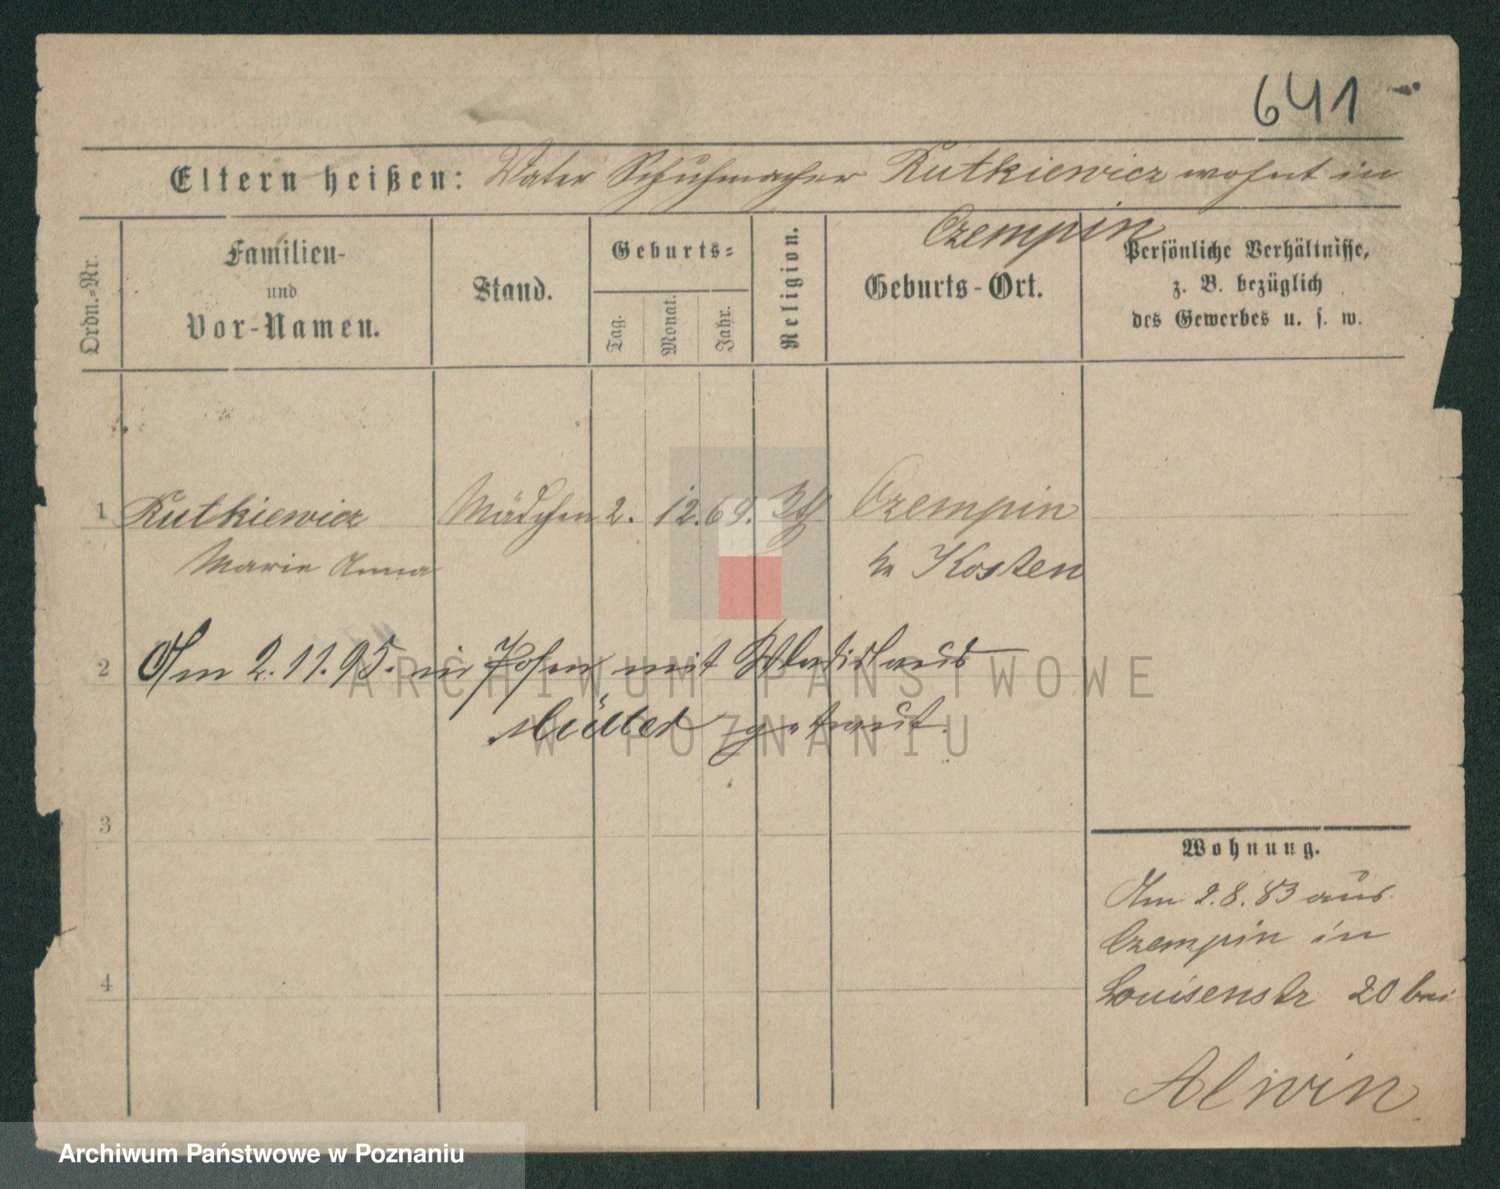 641
Eltern heißen: Vater Schuhmacher Rutkiewicz wohnt in
Czempin
Ordn.-Nr.
Familien-
und
Vor-Namen.
Stand.
Geburts-
Tag.
Monat.
Jahr.
Religion.
Geburts-Ort.
Persönliche Verhältnisse,
z. B. bezüglich
des Gewerbes u. s. w.
1 Rutkiewicz Mädchen 2. 12. 69. Czempin
Marie Anna Kosten
2 Am 2.11.95. in Posen mit Wladislaus
Müller getraut.
3
4
Wohnung.
Am 2.8.83 aus
Czempin in
Louisenstr 20 bei
Alwin
ARCHIWUM PAŃSTWOWE
W POZNANIU
Archiwum Państwowe w Poznaniu